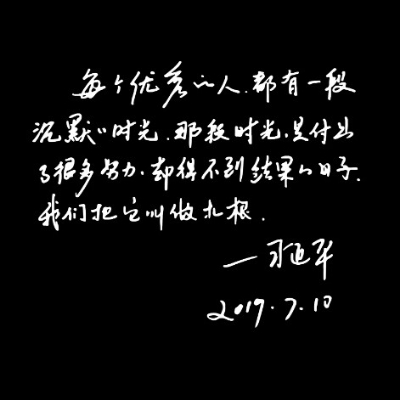 每个优秀的人，都有一段
沉默的时光，那段时光，是付出
了很多努力，却得不到结果的日子，
我们把它叫做扎根。
—
2019.7.10